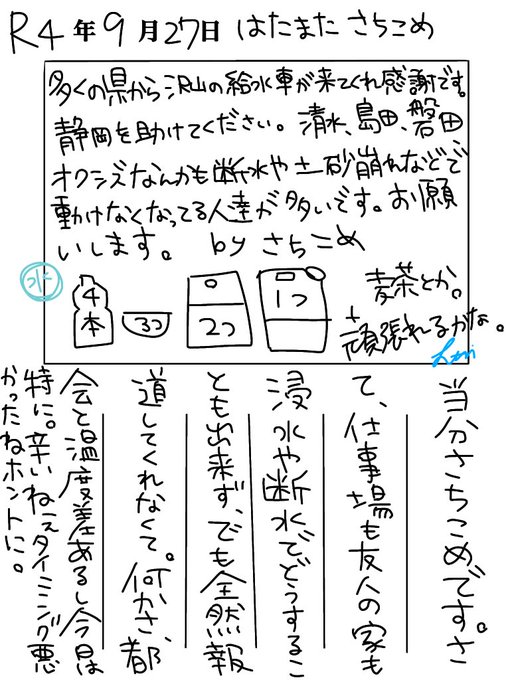 R4年9月27日 はたまた さちこめ
多くの県から沢山の給水車が来てくれ感謝です。
静岡を助けてください。清水、島田、磐田
オクシズなんかも断水や土砂崩れなどで
動けなくなってる人達が多いです。お願
いします。 by さちこめ
水
4本
3つ
2つ
1つ
麦茶とか。
+
頑張れるかな。
当分さちこめです。さ
て、仕事場も友人の家も
浸水や断水でどうするこ
とも出来ず、でも全然報
道してくれなくて。何かさ、都
会と温度差あるし今日は
特に。辛いねぇタイミング悪
かったねホントに。